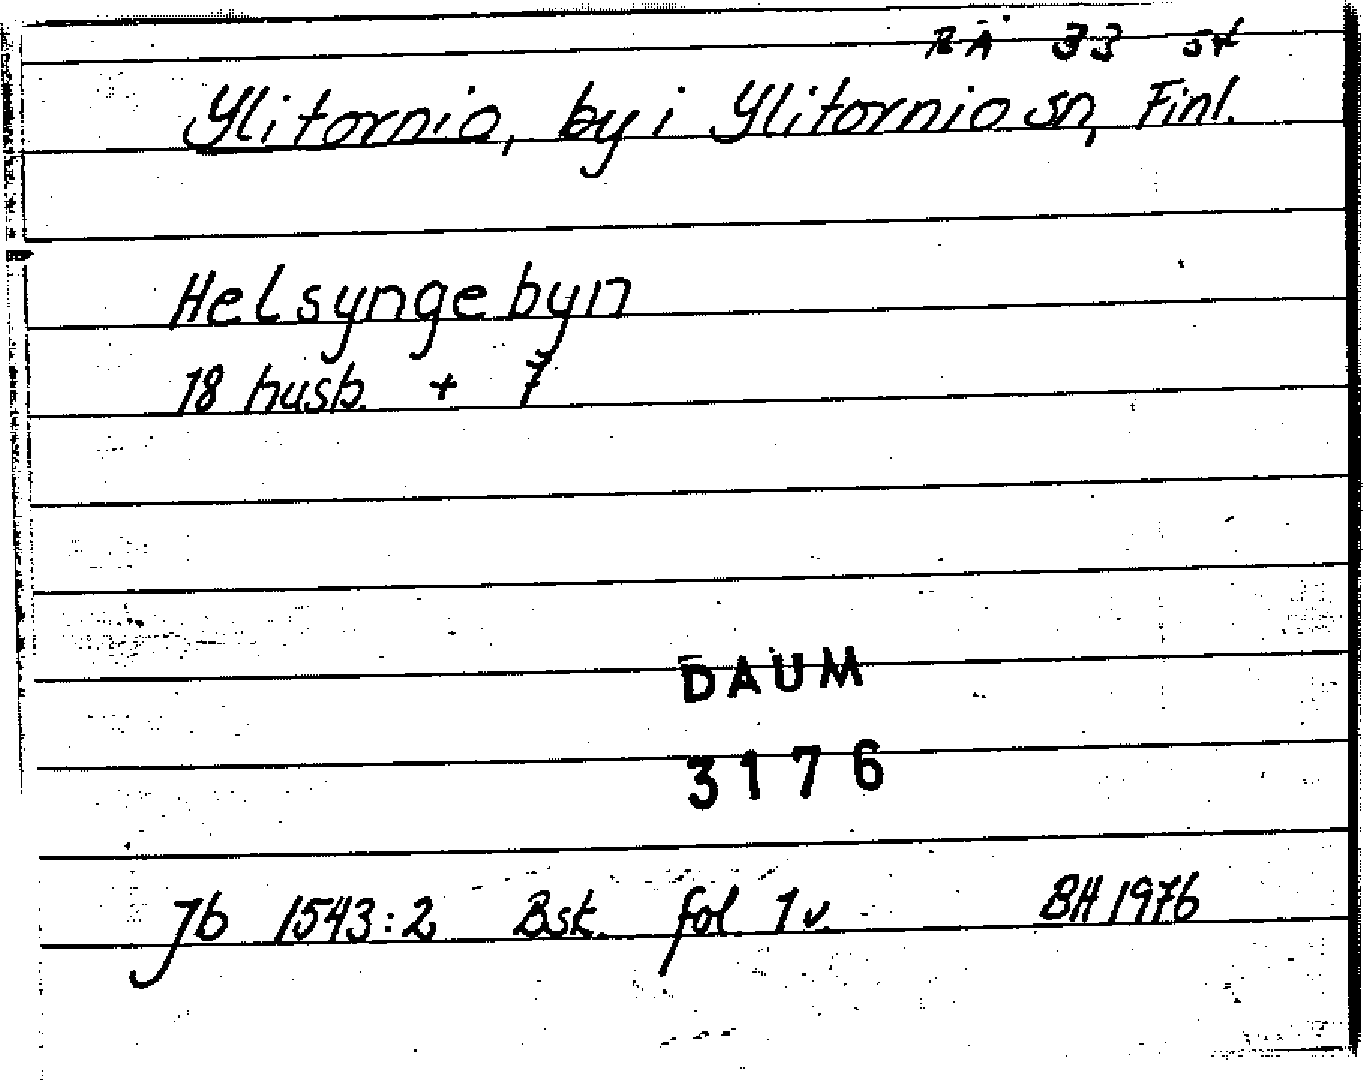 RÄ 33 54
Ylitornio, by i Ylitornio sn, Finl.
Helsyngebyn
18 husb. + 7
DAUM
3176
Jb 1543:2 Bsk. fol 1v. BH 1976